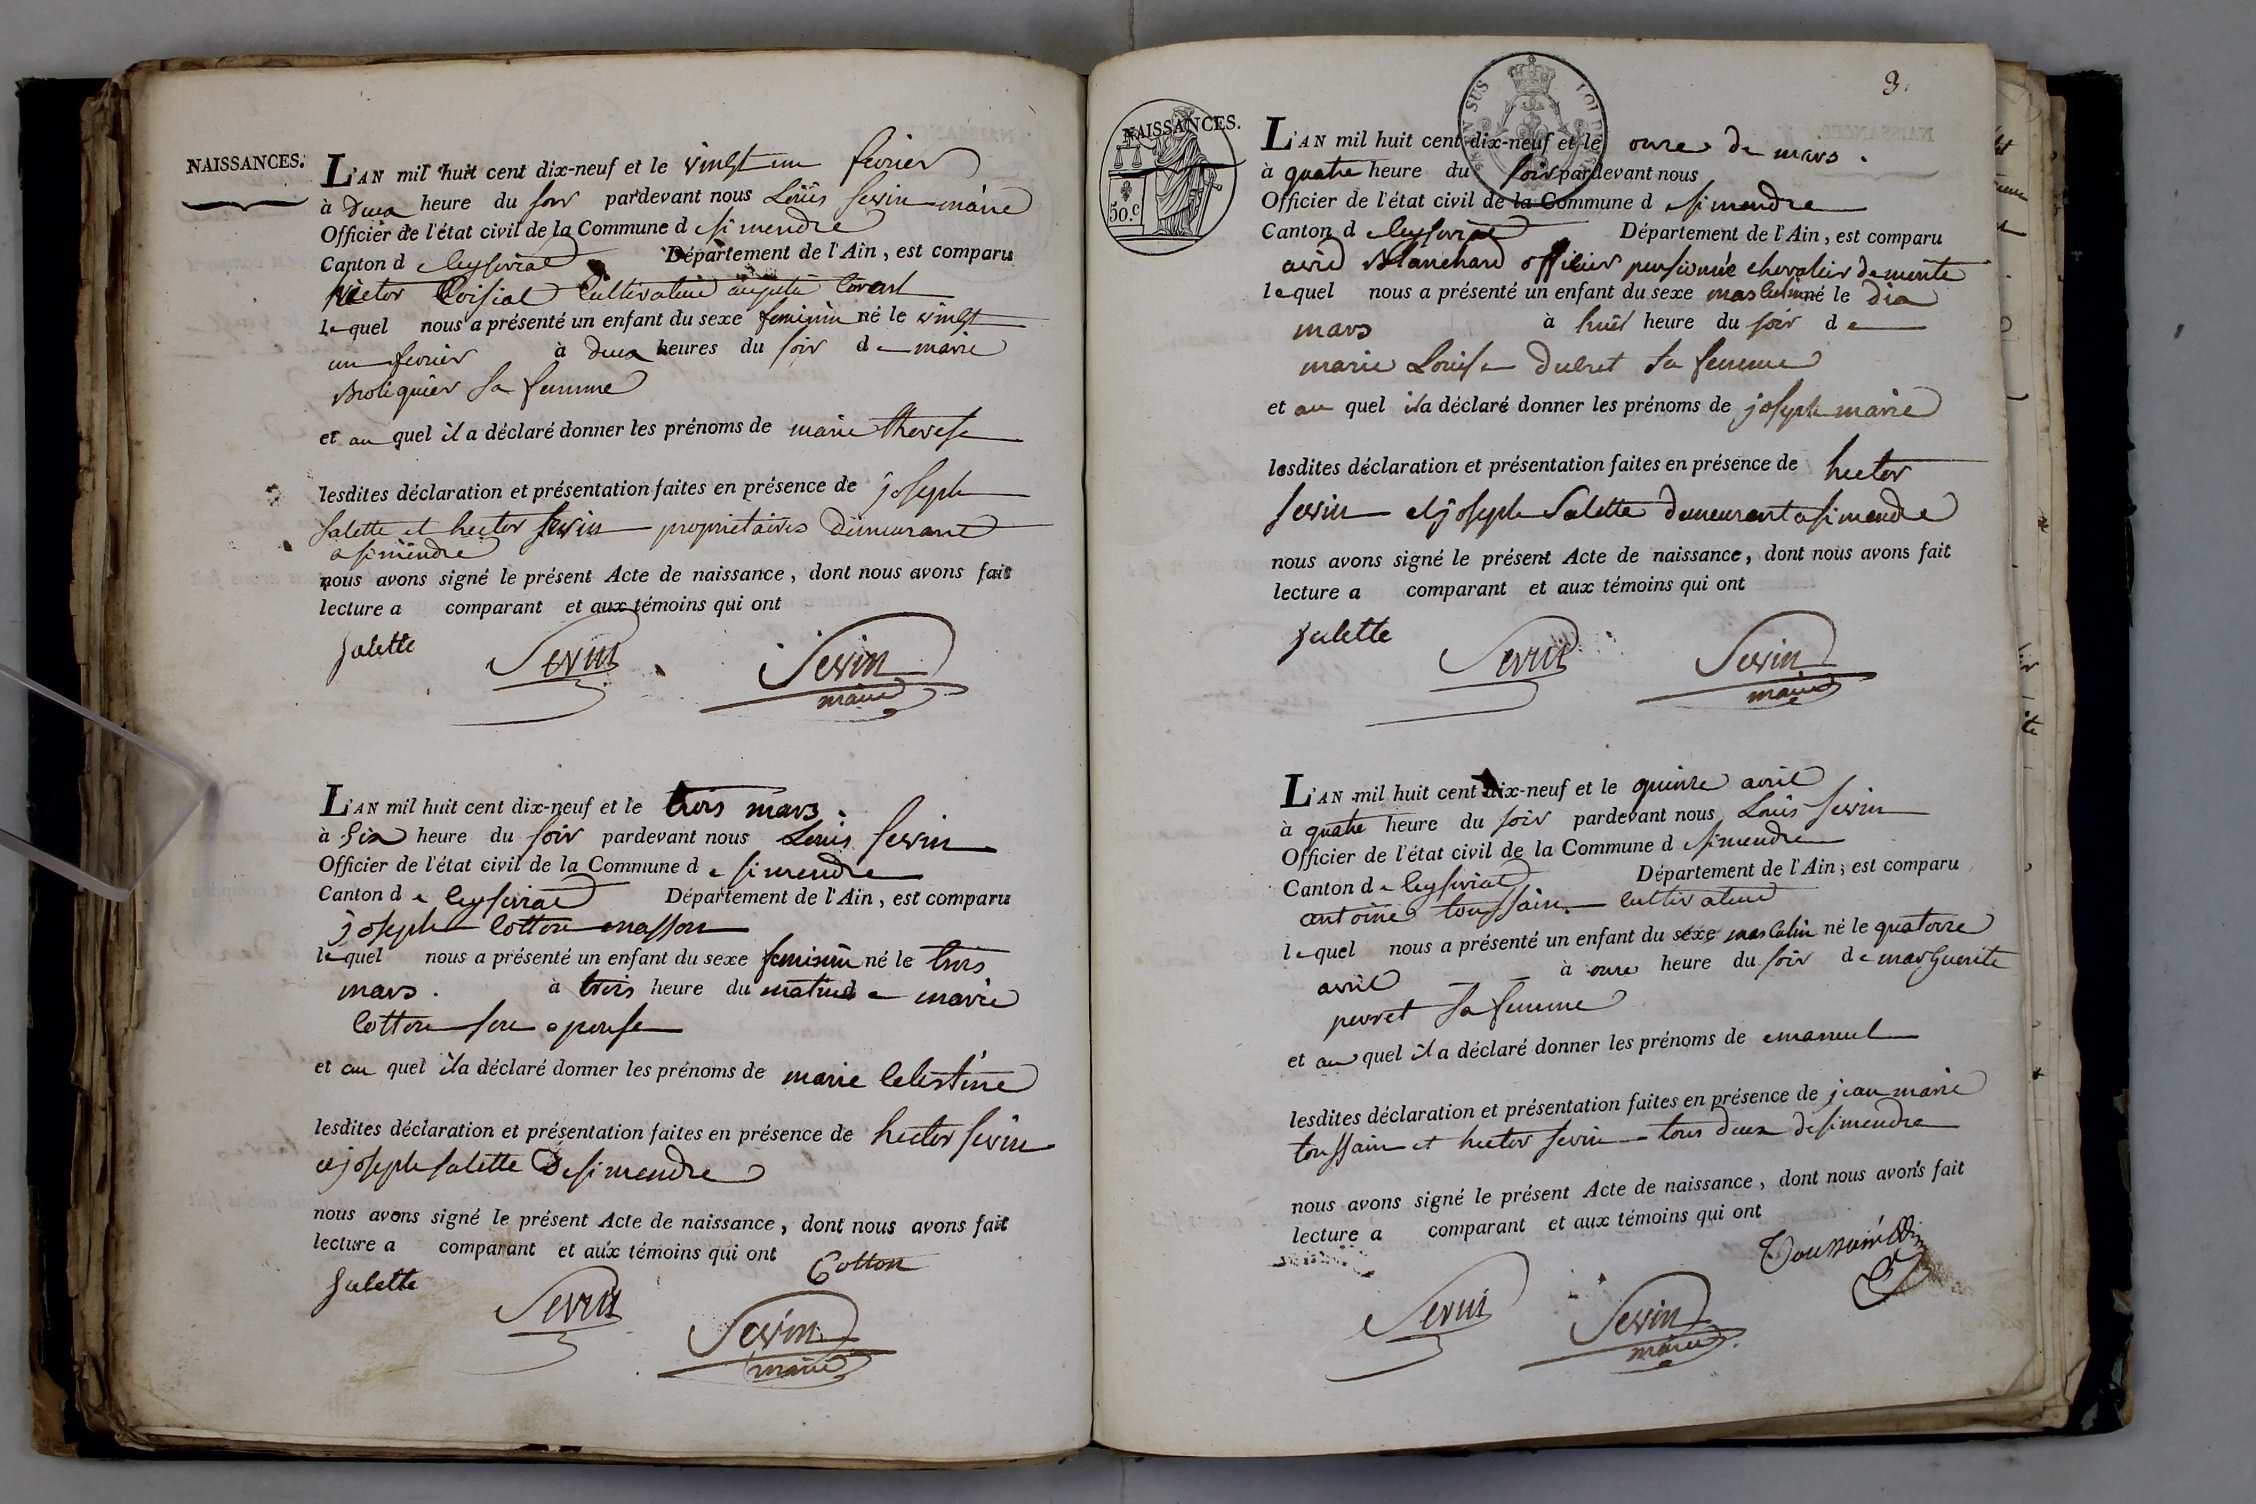 NAISSANCES.
L'AN mil huit cent dix-neuf et le vingt un fevrier
à deux heure du soir pardevant nous Louis Sevin maire
Officier de l'état civil de la Commune d simendre
Canton d ceyseriat Département de l'Ain, est comparu
hictor cultivateur
lequel nous a présenté un enfant du sexe feminin né le vingt
un fevrier à deux heures du soir de marie
Broliquier sa femme
et au quel il a déclaré donner les prénoms de marie therese
lesdites déclaration et présentation faites en présence de joseph
salette et hector sevin propriétaires demeurant
a simendre
nous avons signé le présent Acte de naissance, dont nous avons fait
lecture a comparant et aux témoins qui ont
Salette Sevin Sevin
maire
L'AN mil huit cent dix-neuf et le trois mars.
à six heure du soir pardevant nous Louis Sevin
Officier de l'état civil de la Commune de simendre
Canton de ceyseriat Département de l'Ain, est comparu
joseph cotton masson
lequel nous a présenté un enfant du sexe feminin né le trois
mars. à trois heure du matin de marie
cotton son epouse
et au quel il a déclaré donner les prénoms de marie celestine
lesdites déclaration et présentation faites en présence de hector sevin
et joseph salette de simendre
nous avons signé le présent Acte de naissance, dont nous avons fait
lecture a comparant et aux témoins qui ont
Cotton
Salette Sevin Sevin
maire
3.
NAISSANCES.
50.c
L'AN mil huit cent dix-neuf et le onze de mars.
à quatre heure du soir pardevant nous
Officier de l'état civil de la Commune d simendre
Canton d ceyseriat Département de l'Ain, est comparu
Blanchard officier pensionné chevalier de merite
lequel nous a présenté un enfant du sexe masculin né le dix
mars à huit heure du soir de
marie Louise Dubret sa femme
et au quel il a déclaré donner les prénoms de joseph marie
lesdites déclaration et présentation faites en présence de hector
sevin et joseph salette demeurant a simendre
nous avons signé le présent Acte de naissance, dont nous avons fait
lecture a comparant et aux témoins qui ont
Salette Sevin Sevin
maire
L'AN mil huit cent dix-neuf et le quinze avril
à quatre heure du soir pardevant nous Louis Sevin
Officier de l'état civil de la Commune d simendre
Canton de ceyseriat Département de l'Ain, est comparu
antoine toussain cultivateur
lequel nous a présenté un enfant du sexe masculin né le quatorze
avril à onze heure du soir de marguerite
perret sa femme
et au quel il a déclaré donner les prénoms de emanuel
lesdites déclaration et présentation faites en présence de jean marie
toussain et hector sevin tous deux de simendre
nous avons signé le présent Acte de naissance, dont nous avons fait
lecture a comparant et aux témoins qui ont
Toussain
Sevin Sevin
maire